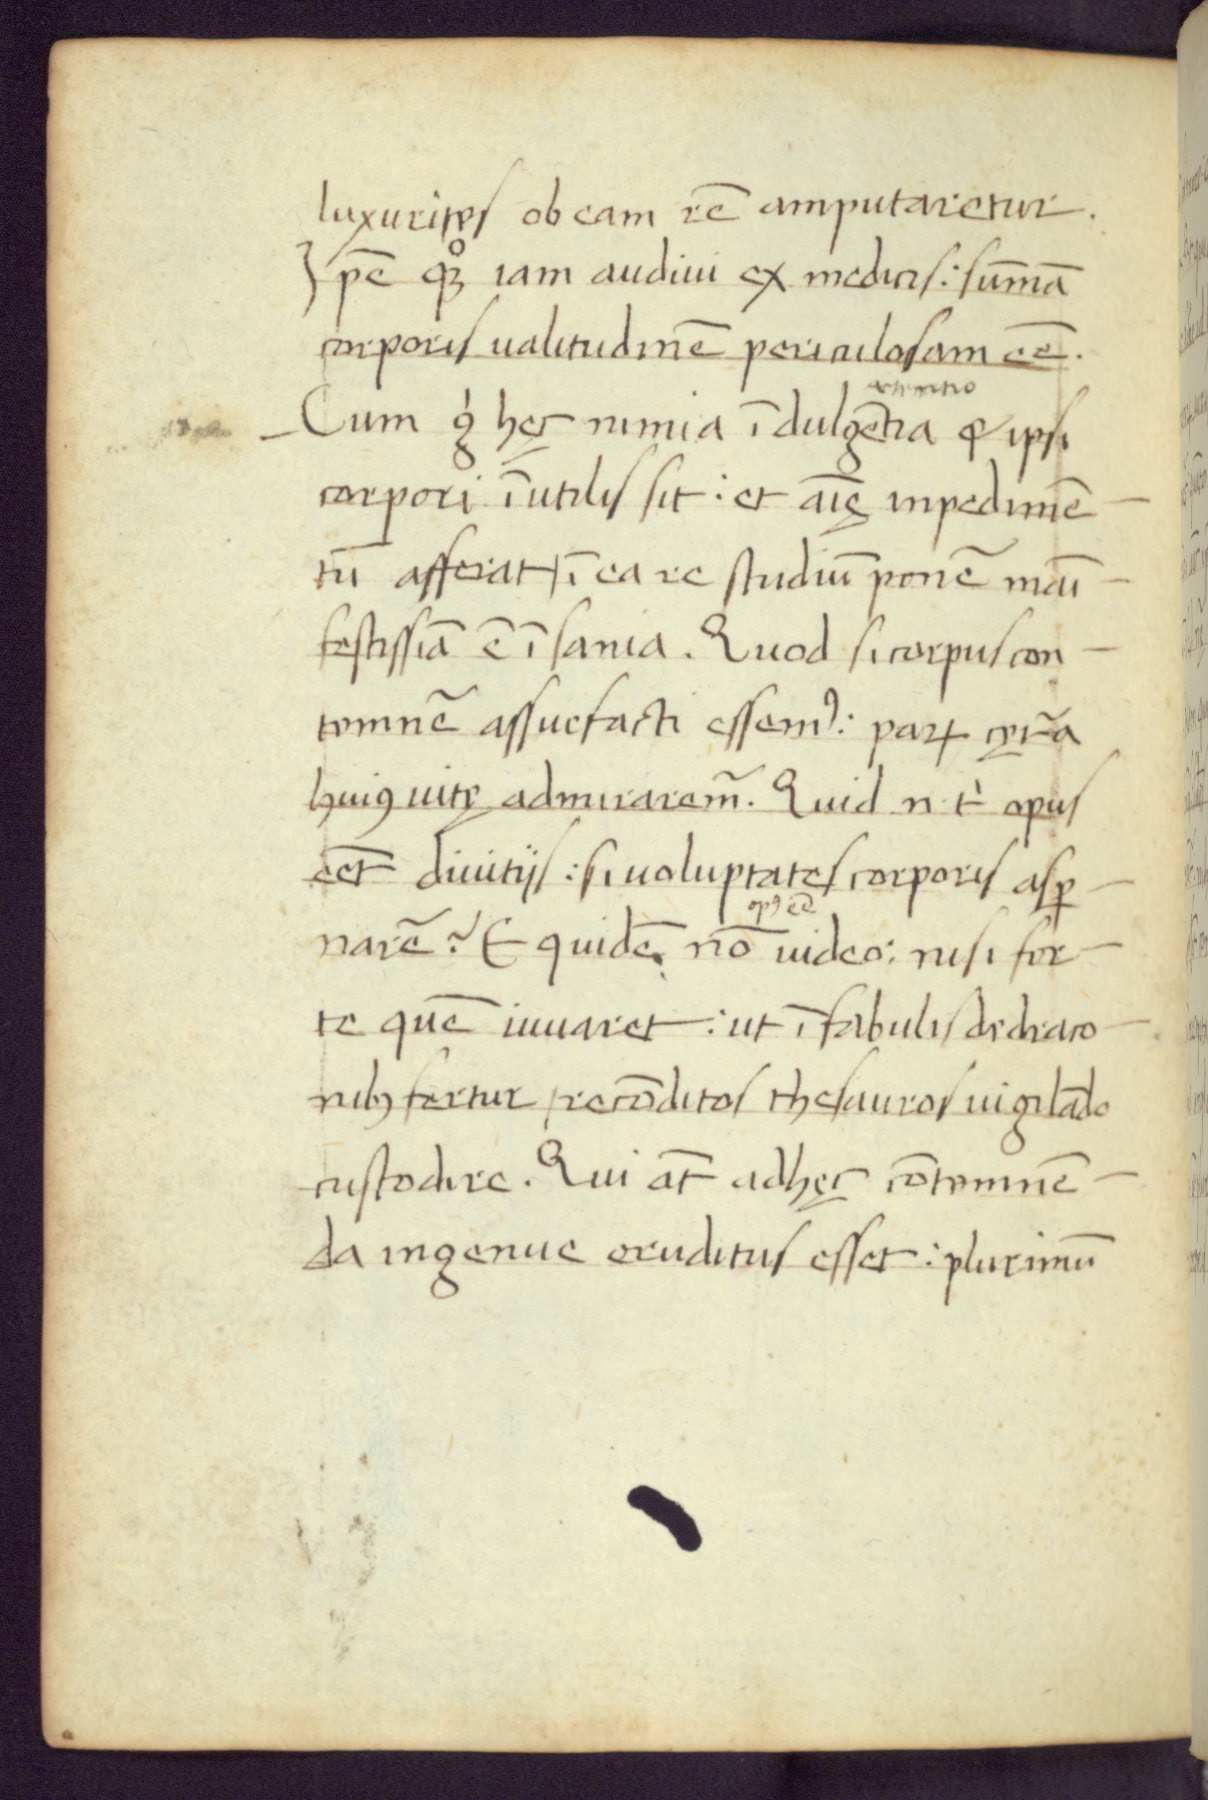 luxuriẽs ob eam rẽ amputaretur.
Ipẽ qꝫͦ iam audiui ex medicis: sum̃ã
corporis ualitudinẽ periculosam eẽ.
Cum g̍ hęc nimia ĩdulgẽtia & ipsi
corpori ĩutilis sit: et aĩę inpedimẽ-
tũ afferat ĩ ea re studiũ ponẽ maĩ-
festissiã ẽ ĩsania. Quod si corpus con-
temnẽ assuefacti essemꝰ: paꝝ cęt̃a
huiꝰ uitę admiraremr̃. Quid n t̀ opus
eẽt diuitijs: si uoluptates corporis asp̱-
opꝰ eẽ
narẽ? Equidẽ nõ uideo: nisi for-
te quẽ iuuaret: ut ĩ fabulis de draco-
nibꝫ fertur recõditos thesauros uigilãdo
custodire. Qui at̃ ad hęc cõtemnẽ-
da ingenue eruditus esset: plurimũ